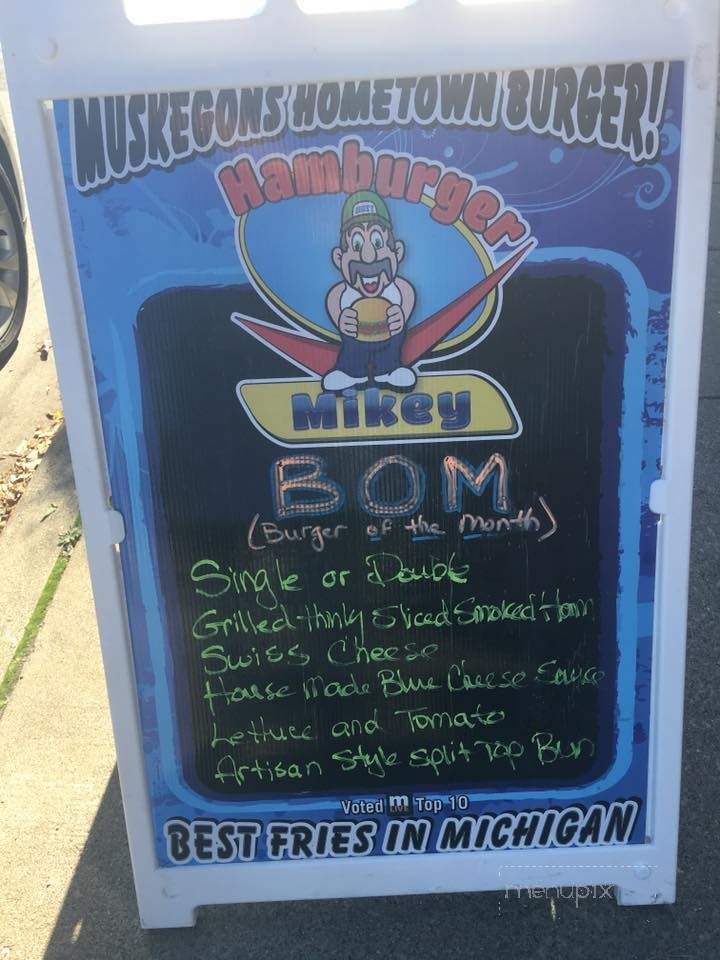 MUSKEGONS HOMETOWN BURGER!
Hamburger
MIKEY
Mikey
BOM
(Burger of the Month)
Single or Double
Grilled thinly Sliced Smoked Ham
Swiss Cheese
House Made Blue Cheese Sauce
Lettuce and Tomato
Artisan Style Split Top Bun
Voted m LIVE Top 10
BEST FRIES IN MICHIGAN
menupix